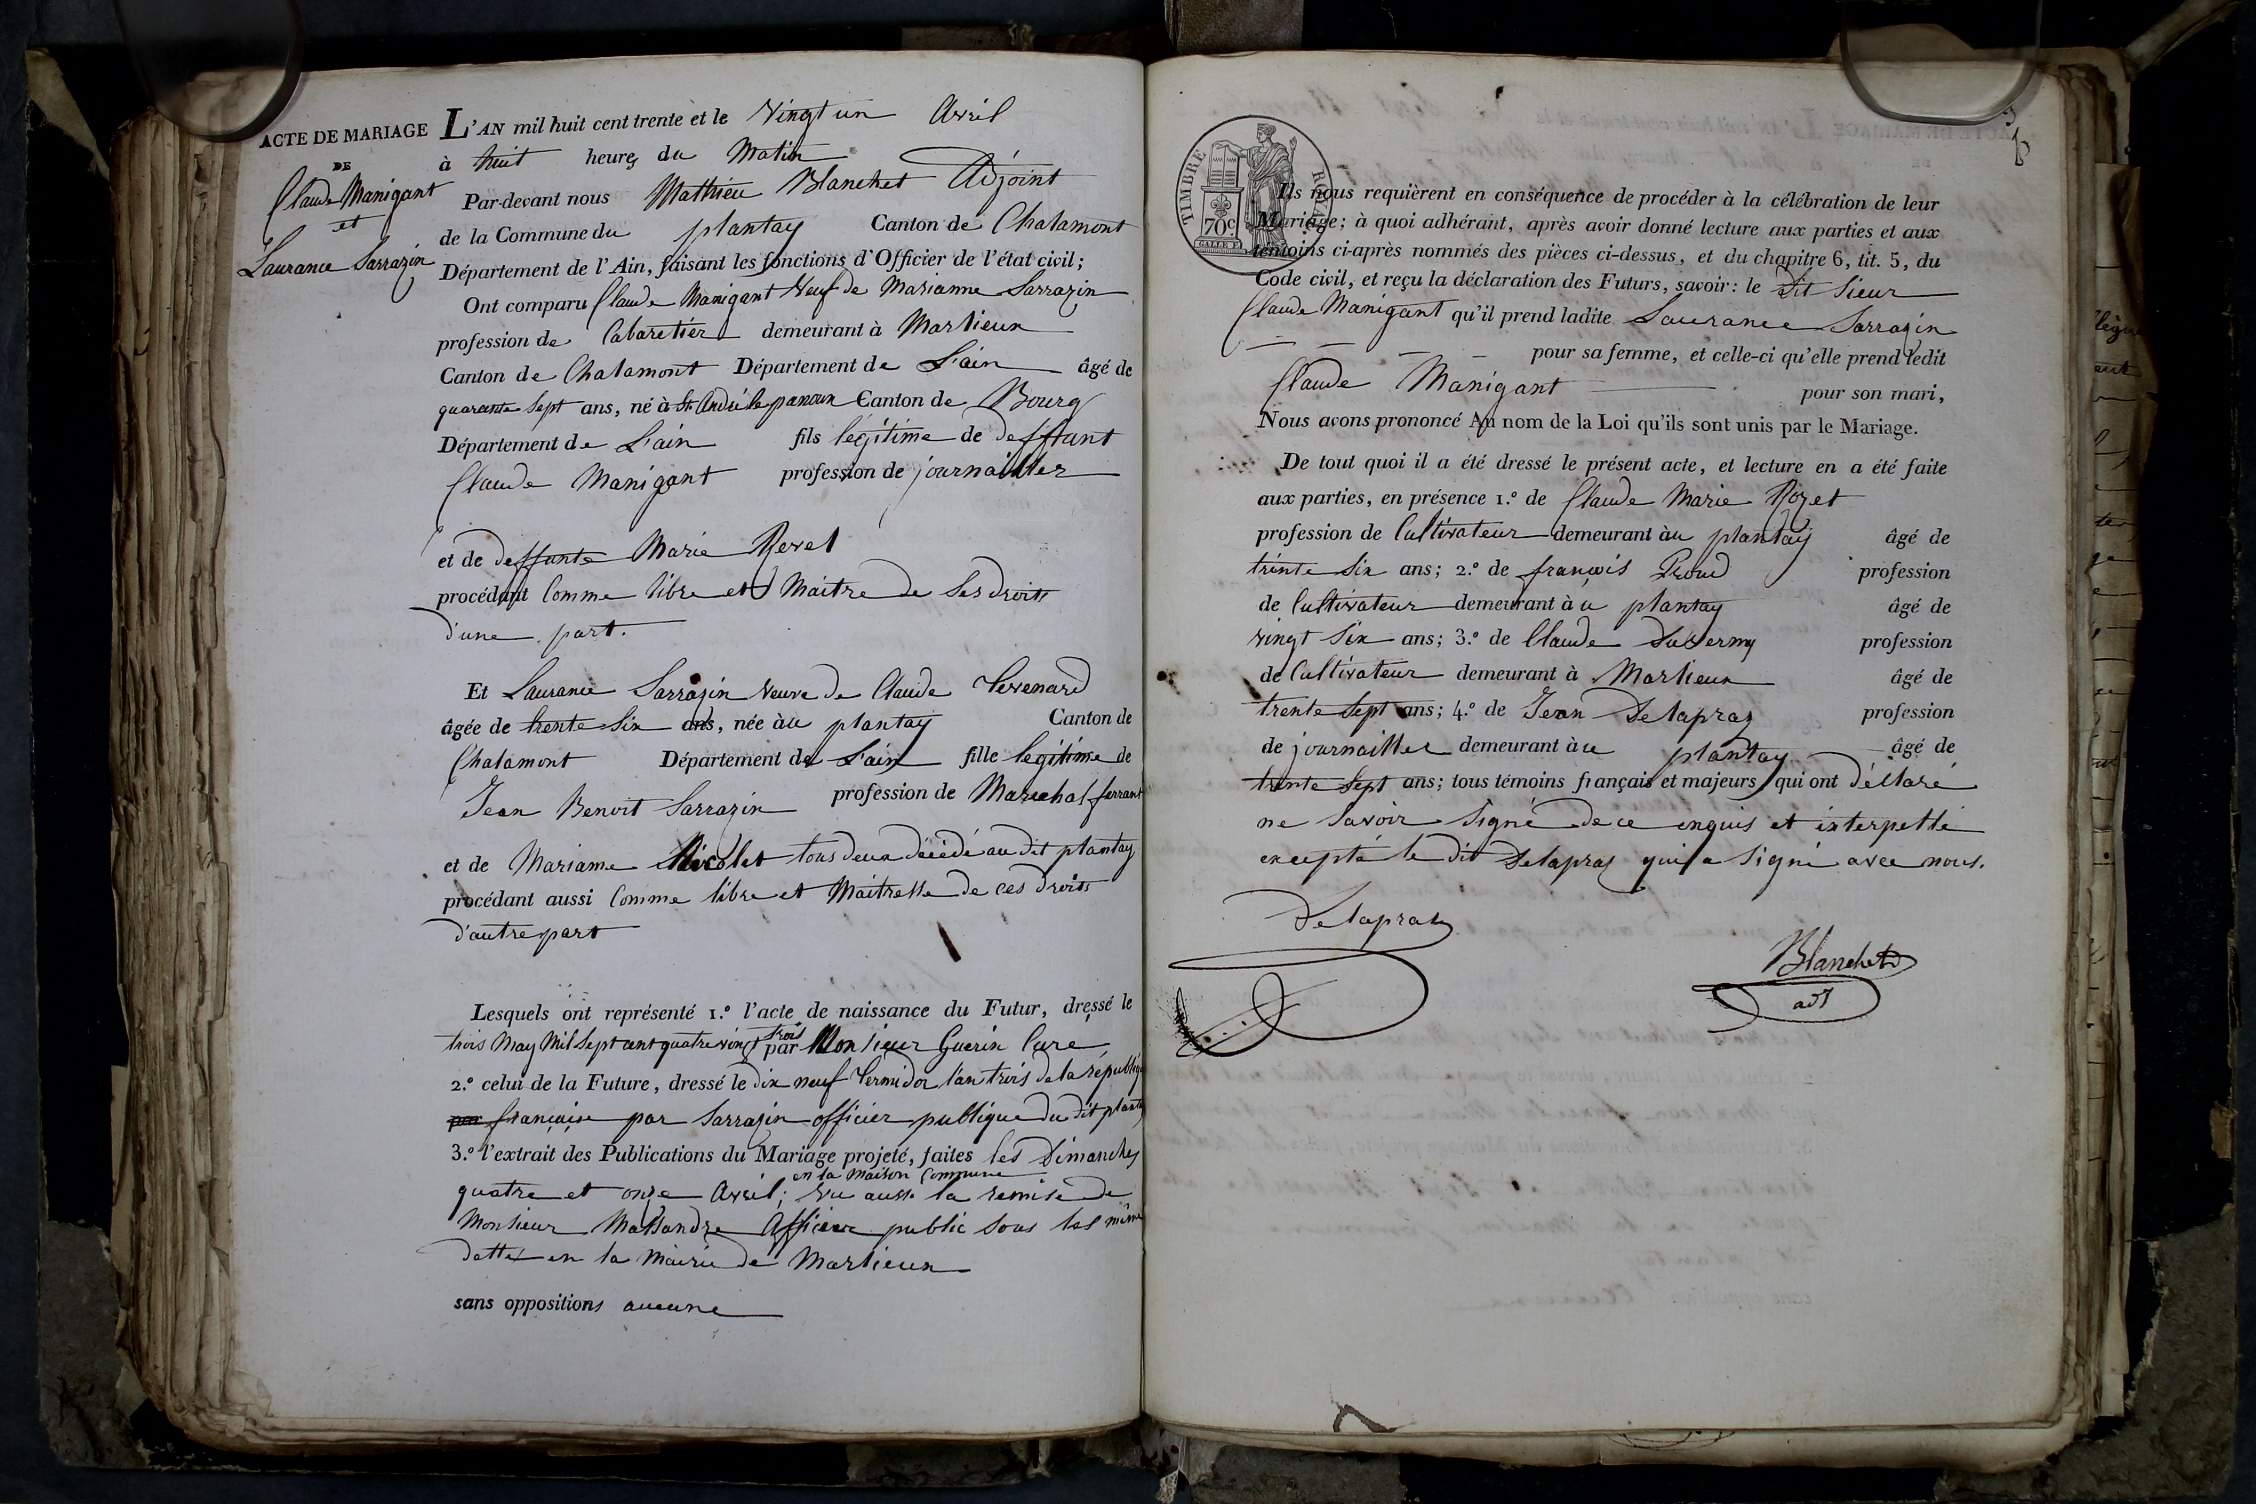 ACTE DE MARIAGE
DE
Claude Manigant
et
Laurance Sarrazin
L'AN mil huit cent trente et le vingt un Avril
à huit heures du Matin
Par-devant nous Mathieu Blanchet Adjoint
de la Commune du plantay Canton de Chalamont
Département de l'Ain, faisant les fonctions d'Officier de l'état civil;
Ont comparu Claude Manigant Veuf de Marianne Sarrazin
profession de Cabaretier demeurant à Marlieux
Canton de Chalamont Département de L'ain âgé de
quarante sept ans, né à St André le panoux Canton de Bourg
Département de L'ain fils légitime de deffunt
Claude Manigant profession de journallier
et de deffunte Marie Revel
procédant Comme libre et Maitre de Ses droits
d'une part.
Et Laurance Sarrazin veuve de Claude Tevenard
âgée de trente six ans, née àu plantay Canton de
Chalamont Département de L'ain fille legitime de
Jean Benoit Sarrazin profession de Marechal ferrant
et de Mariame Nicolet tous deux décédé au dit plantay
procédant aussi Comme libre et Maitresse de ces droits
d'autre part
Lesquels ont représenté 1.º l'acte de naissance du Futur, dressé le
trois May Mil sept cent quatre vingt trois par Monsieur Guerin Curé
2.º celui de la Future, dressé le dix neuf Termidor l'an trois de la républiq
par française par Sarrazin officier publique du dit plantay
3.º l'extrait des Publications du Mariage projeté, faites les Dimanches
quatre et onze Avril; en la Maison Commune vu aussi la remise de
Monsieur Massandre Officier public sous les même
datte en la Mairie de Marlieux
sans oppositions aucune
TIMBRE ROYAL
70c.
Ils nous requièrent en conséquence de procéder à la célébration de leur
Mariage; à quoi adhérant, après avoir donné lecture aux parties et aux
témoins ci-après nommés des pièces ci-dessus, et du chapitre 6, tit. 5, du
Code civil, et reçu la déclaration des Futurs, savoir: le dit Sieur
Claude Manigant qu'il prend ladite Laurance Sarrazin
pour sa femme, et celle-ci qu'elle prend ledit
Claude Manigant pour son mari,
Nous avons prononcé Au nom de la Loi qu'ils sont unis par le Mariage.
De tout quoi il a été dressé le présent acte, et lecture en a été faite
aux parties, en présence 1.º de Claude Marie Rozet
profession de Cultivateur demeurant àu plantay âgé de
trente six ans; 2.º de françois Proud profession
de Cultivateur demeurant à u plantay âgé de
vingt six ans; 3.º de Claude Duvermy profession
de Cultivateur demeurant à Marlieux âgé de
trente sept ans; 4.º de Jean Delapraz profession
de journallier demeurant àu plantay âgé de
trente sept ans; tous témoins français et majeurs qui ont déclaré
ne Savoir Signé de ce enquis et interpellé
excepté le dit Delapraz qui a Signé avec nous.
Delapraz
Blanchet
adJ